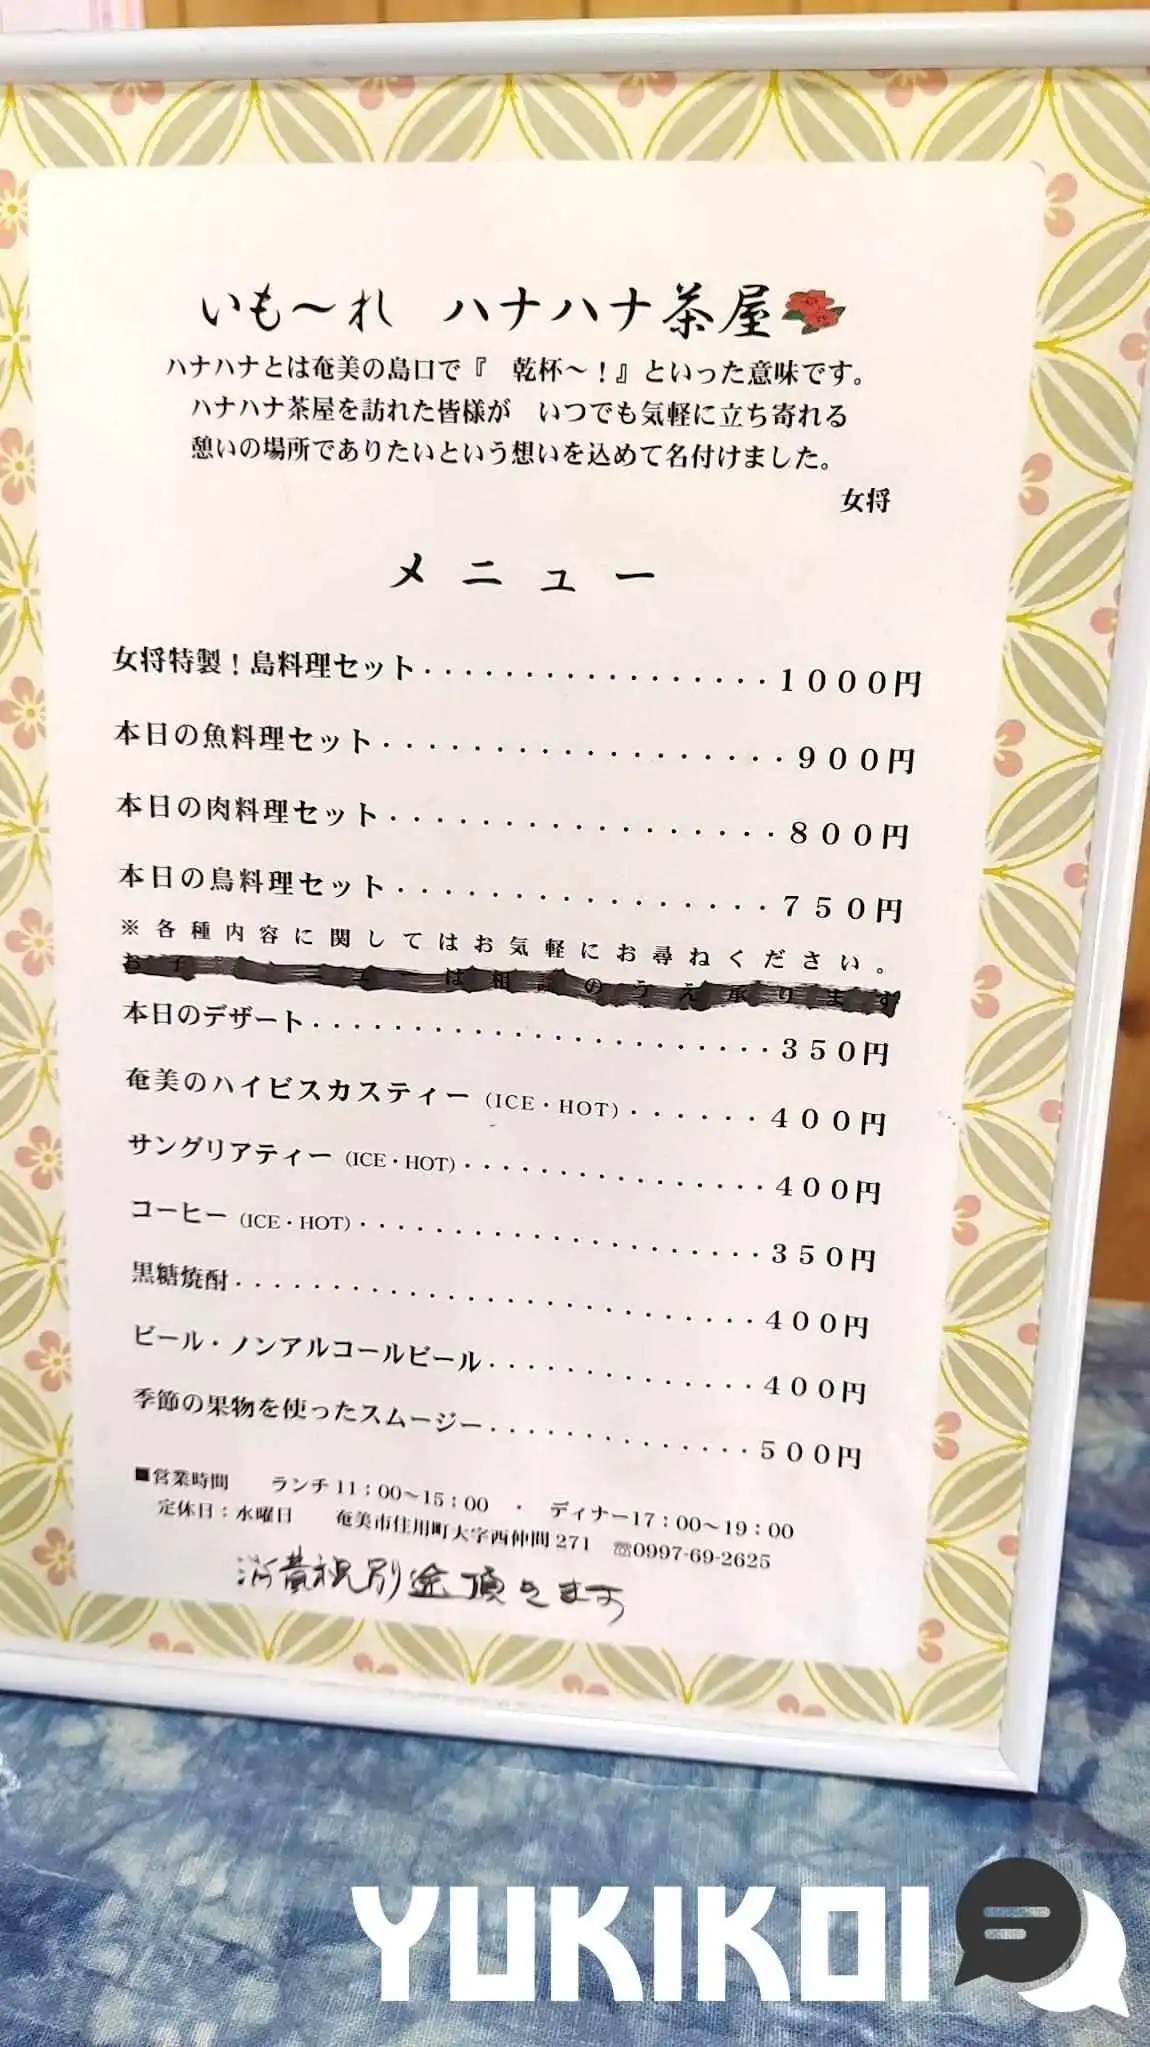 いも～れ　ハナハナ茶屋
ハナハナとは奄美の島口で『　乾杯～！』といった意味です。
ハナハナ茶屋を訪れた皆様が　いつでも気軽に立ち寄れる
憩いの場所でありたいという想いを込めて名付けました。
女将
メニュー
女将特製！島料理セット・・・・・・・・・・・・・・・・・１０００円
本日の魚料理セット・・・・・・・・・・・・・・・・・・９００円
本日の肉料理セット・・・・・・・・・・・・・・・・・８００円
本日の鳥料理セット・・・・・・・・・・・・・・・・・７５０円
※各種内容に関してはお気軽にお尋ねください。
は相談のうえ承ります
本日のデザート・・・・・・・・・・・・・・・・・・・・・・３５０円
奄美のハイビスカスティー（ICE・HOT）・・・・・・４００円
サングリアティー（ICE・HOT）・・・・・・・・・・・・・・・４００円
コーヒー（ICE・HOT）・・・・・・・・・・・・・・・・・・・・３５０円
黒糖焼酎・・・・・・・・・・・・・・・・・・・・・・・・・・４００円
ビール・ノンアルコールビール・・・・・・・・・・・・・４００円
季節の果物を使ったスムージー・・・・・・・・・・・・・５００円
■営業時間　　ランチ 11：00～15：00　・　ディナー17：00～19：00
定休日：水曜日　　奄美市住用町大字西仲間 271　☏0997-69-2625
消費税別途頂きます
YUKIKOI